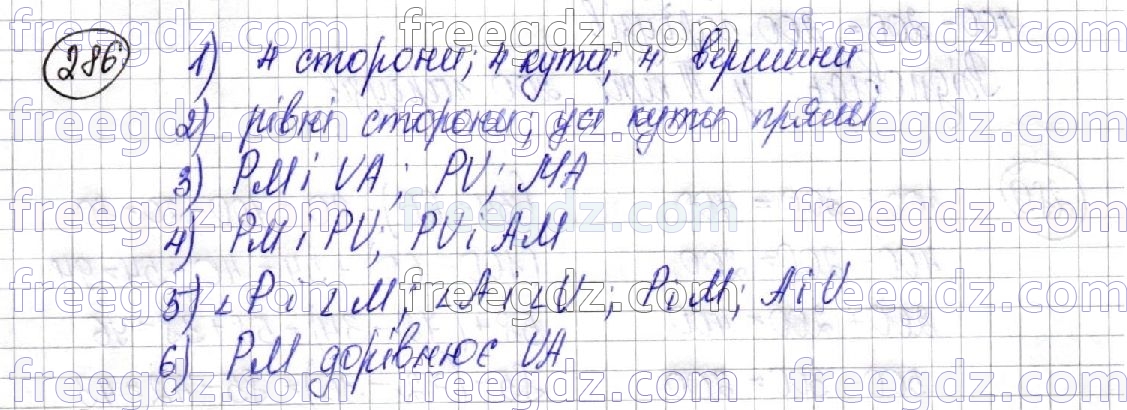 286 1) 4 сторони; 4 кути; 4 вершини
2) рівні сторони, усі кути прямі
3) PM і VA; PV; MA
4) PM і PV; PV і AM
5) ∠P і ∠M; ∠A і ∠V; P і M; A і V
6) PM дорівнює VA